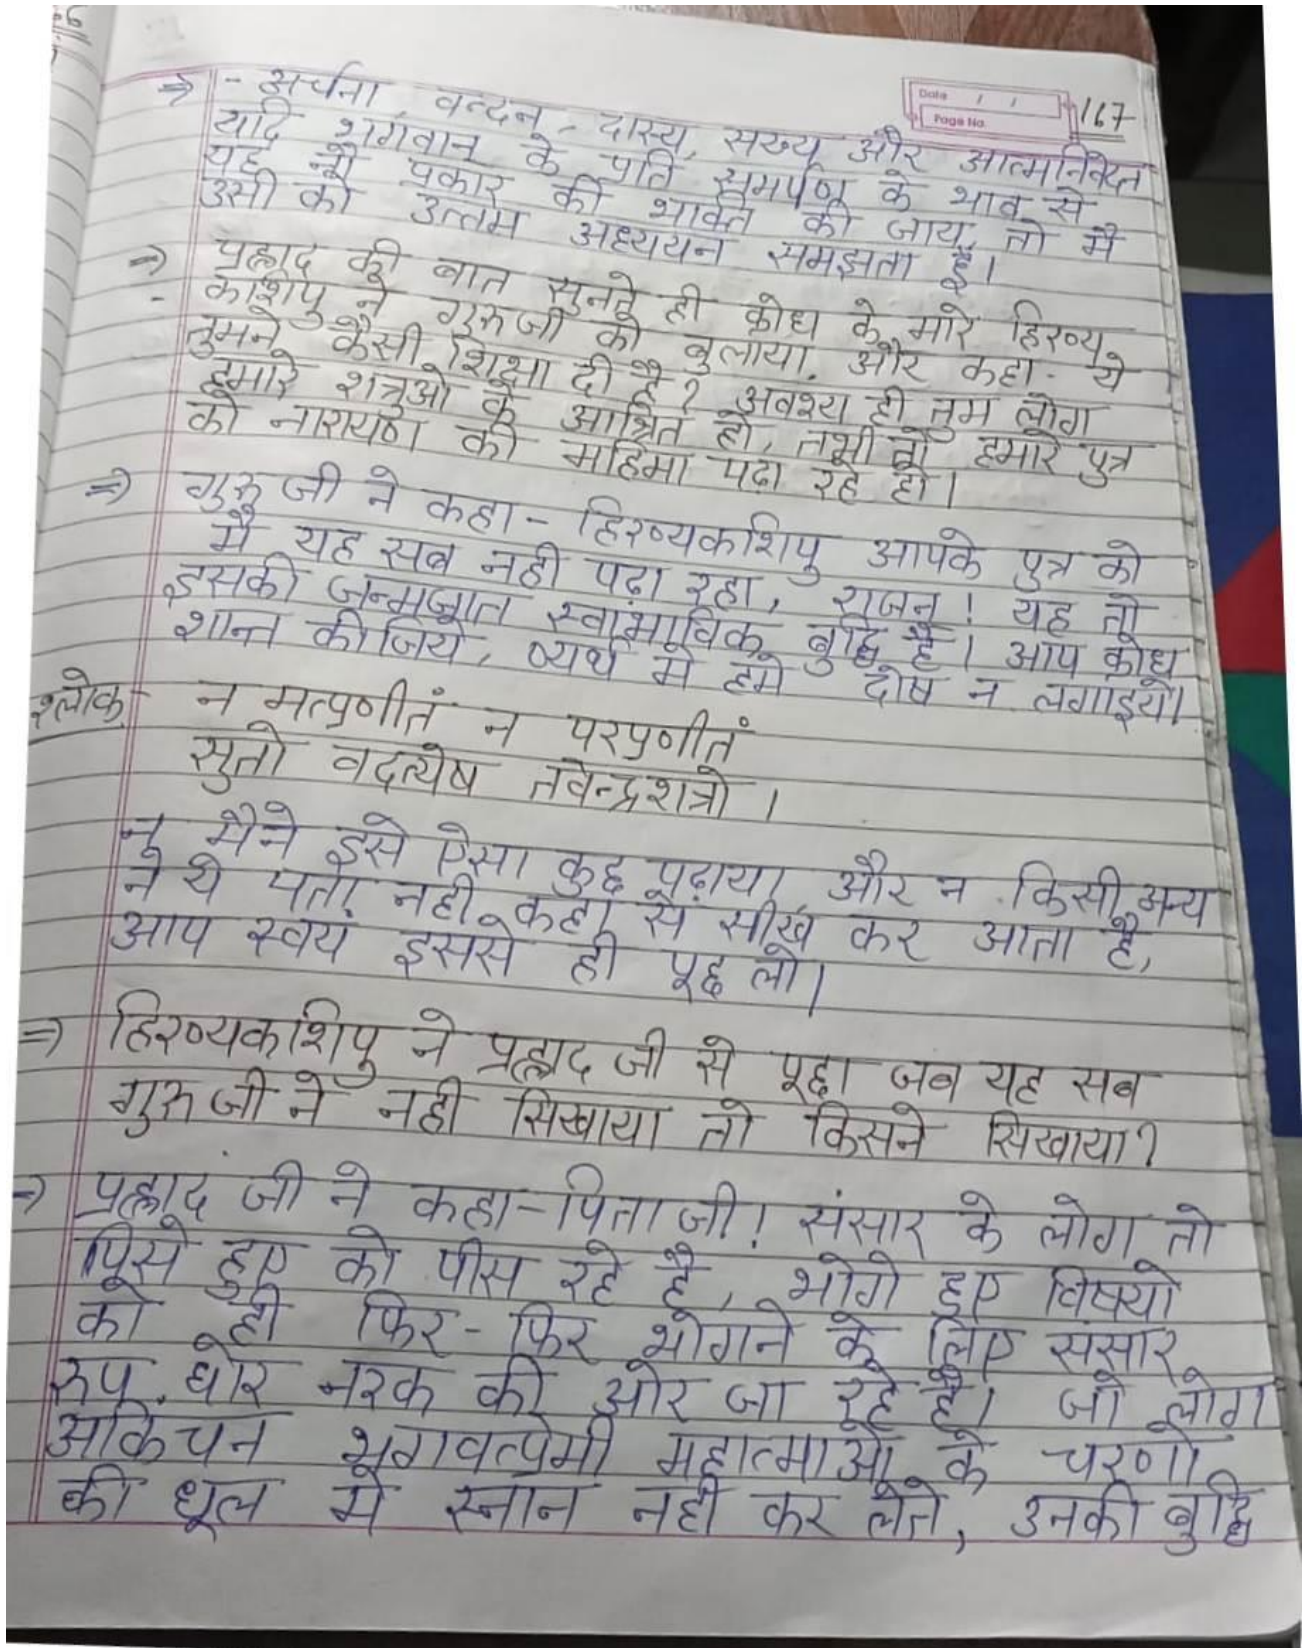 Date / /
Page No.
167
⇒ - अर्चना, वन्दन, दास्य, सख्य और आत्मनिवेदन
यदि भगवान् के प्रति समर्पण के भाव से
यह नौ प्रकार की भक्ति की जाय, तो मै
उसी को उत्तम अध्ययन समझता हूँ।
⇒ प्रह्लाद की बात सुनते ही क्रोध के मारे हिरण्य
- कशिपु ने गुरुजी को बुलाया. और कहा - ये
तुमने कैसी शिक्षा दी है? अवश्य ही तुम लोग
हमारे शत्रुओ के आश्रित हो, तभी तो हमारे पुत्र
को नारायण की महिमा पढ़ा रहे हो।
⇒ गुरु जी ने कहा - हिरण्यकशिपु आपके पुत्र को
मै यह सब नही पढ़ा रहा, राजन्! यह तो
इसकी जन्मजात स्वाभाविक बुद्धि है। आप क्रोध
शान्त कीजिये, व्यर्थ मे हमे दोष न लगाइये।
श्लोक - न मत्प्रणीतं न परप्रणीतं
सुतो वदत्येष तवेन्द्रशत्रो।
न मैने इसे ऐसा कुछ पढ़ाया, और न किसी अन्य
ने ये पता नही कहाँ से सीख कर आता है,
आप स्वयं इससे ही पूछ लो।
⇒ हिरण्यकशिपु ने प्रह्लाद जी से पूछा जब यह सब
गुरु जी ने नही सिखाया तो किसने सिखाया?
⇒ प्रह्लाद जी ने कहा - पिता जी! संसार के लोग तो
पिसे हुए को पीस रहे है, भोगे हुए विषयो
को ही फिर - फिर भोगने के लिए संसार
रुप घोर नरक की ओर जा रहे है। जो लोग
अकिंचन भगवत्प्रेमी महात्माओ के चरणो
की धूल मे स्नान नही कर लेते, उनकी बुद्धि